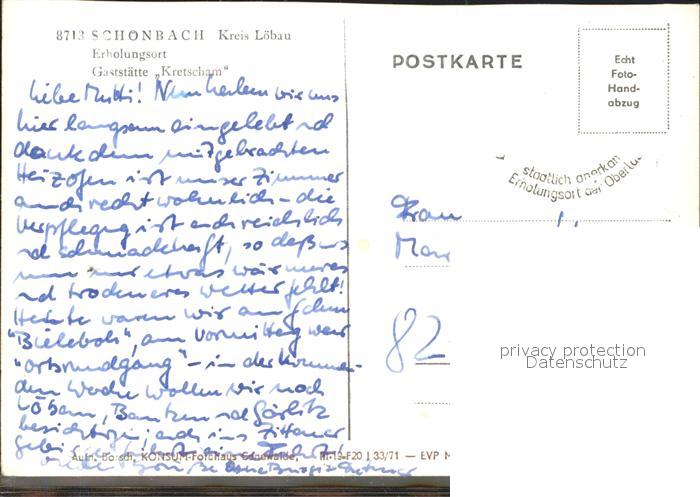 8713 SCHÖNBACH Kreis Löbau
Erholungsort
Gaststätte „Kretscham"
Liebe Mutti! Nun haben wir uns
hier langsam eingelebt und
dank dem mitgebrachten
Heizofen ist unser Zimmer
auch recht wohnlich – die
Verpflegung ist auch reichlich
und schmackhaft, so daß uns
nun nur etwas wärmeres
und trockeneres Wetter fehlt!
Heute waren wir auf dem
"Bieleboh", am Vormittag war
"Ortsrundgang" – in der kommen-
den Woche wollen wir noch
Löbau, Bautzen und Görlitz
besichtigen, auch ins Zittauer
POSTKARTE
Echt
Foto-
Hand-
abzug
staatlich anerkan
Erholungsort der Oberlau
Frau
82
privacy protection
Datenschutz
Aufn. Borsch, KONSUM-Fotohaus Cunewalde, III-19-F20 J 33/71 — EVP M